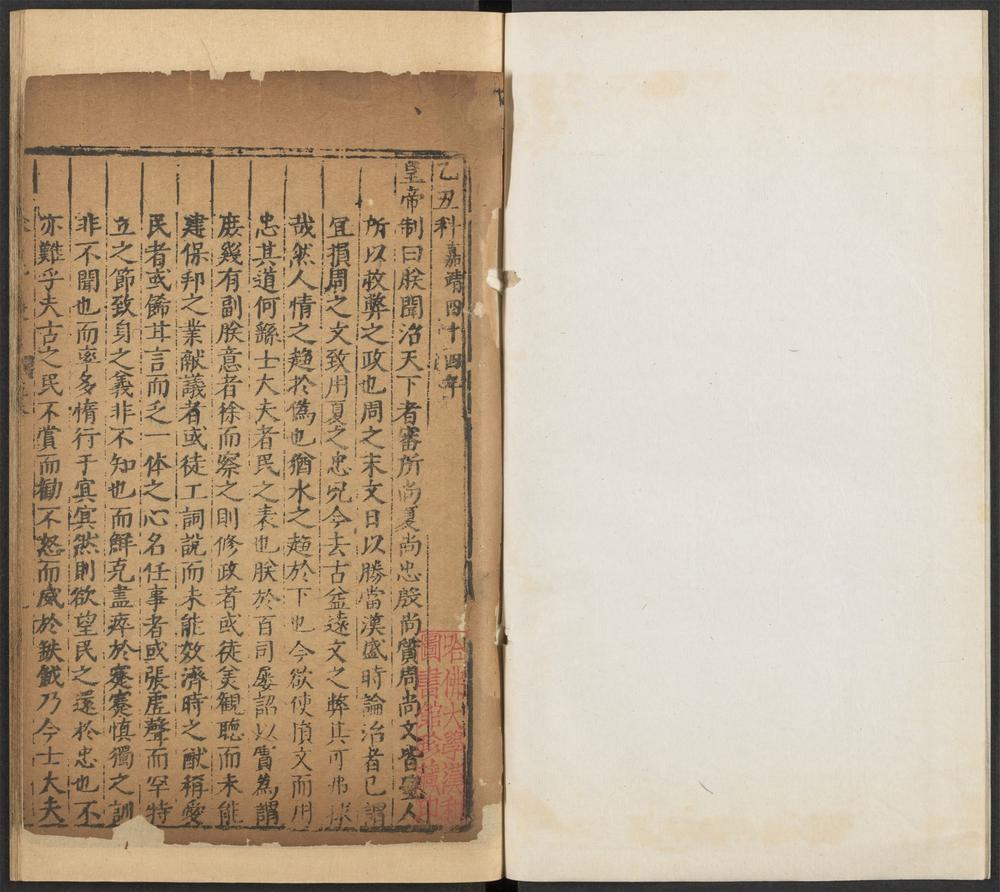 乙丑科嘉靖四十四年
皇帝制曰朕聞治天下者審所尚夏尚忠殷尚質周尚文皆聖人
所以救弊之政也周之末文日以勝當漢盛時論治者已謂
宜損周之文致用夏之忠况今去古益遠文之弊其可弗採
哉然人情之趨於僞也猶水之趨於下也今欲使損文而用
忠其道何繇士大夫者民之表也朕於百司屢詔以實爲謂
庻幾有副朕意者徐而察之則修政者或徒美觀聽而未能
建保邦之業獻議者或徒工詞說而未能效濟時之猷稱愛
民者或餙其言而乏一体之心名任事者或張虗聲而罕特
立之節致身之義非不知也而鮮克盡瘁於蹇蹇慎獨之訓
非不聞也而率多惰行于冥冥然則欲望民之還於忠也不
亦難乎夫古之民不賞而勸不怒而威於鈇鉞乃今士大夫
哈佛大學漢和
圖書館珍藏印